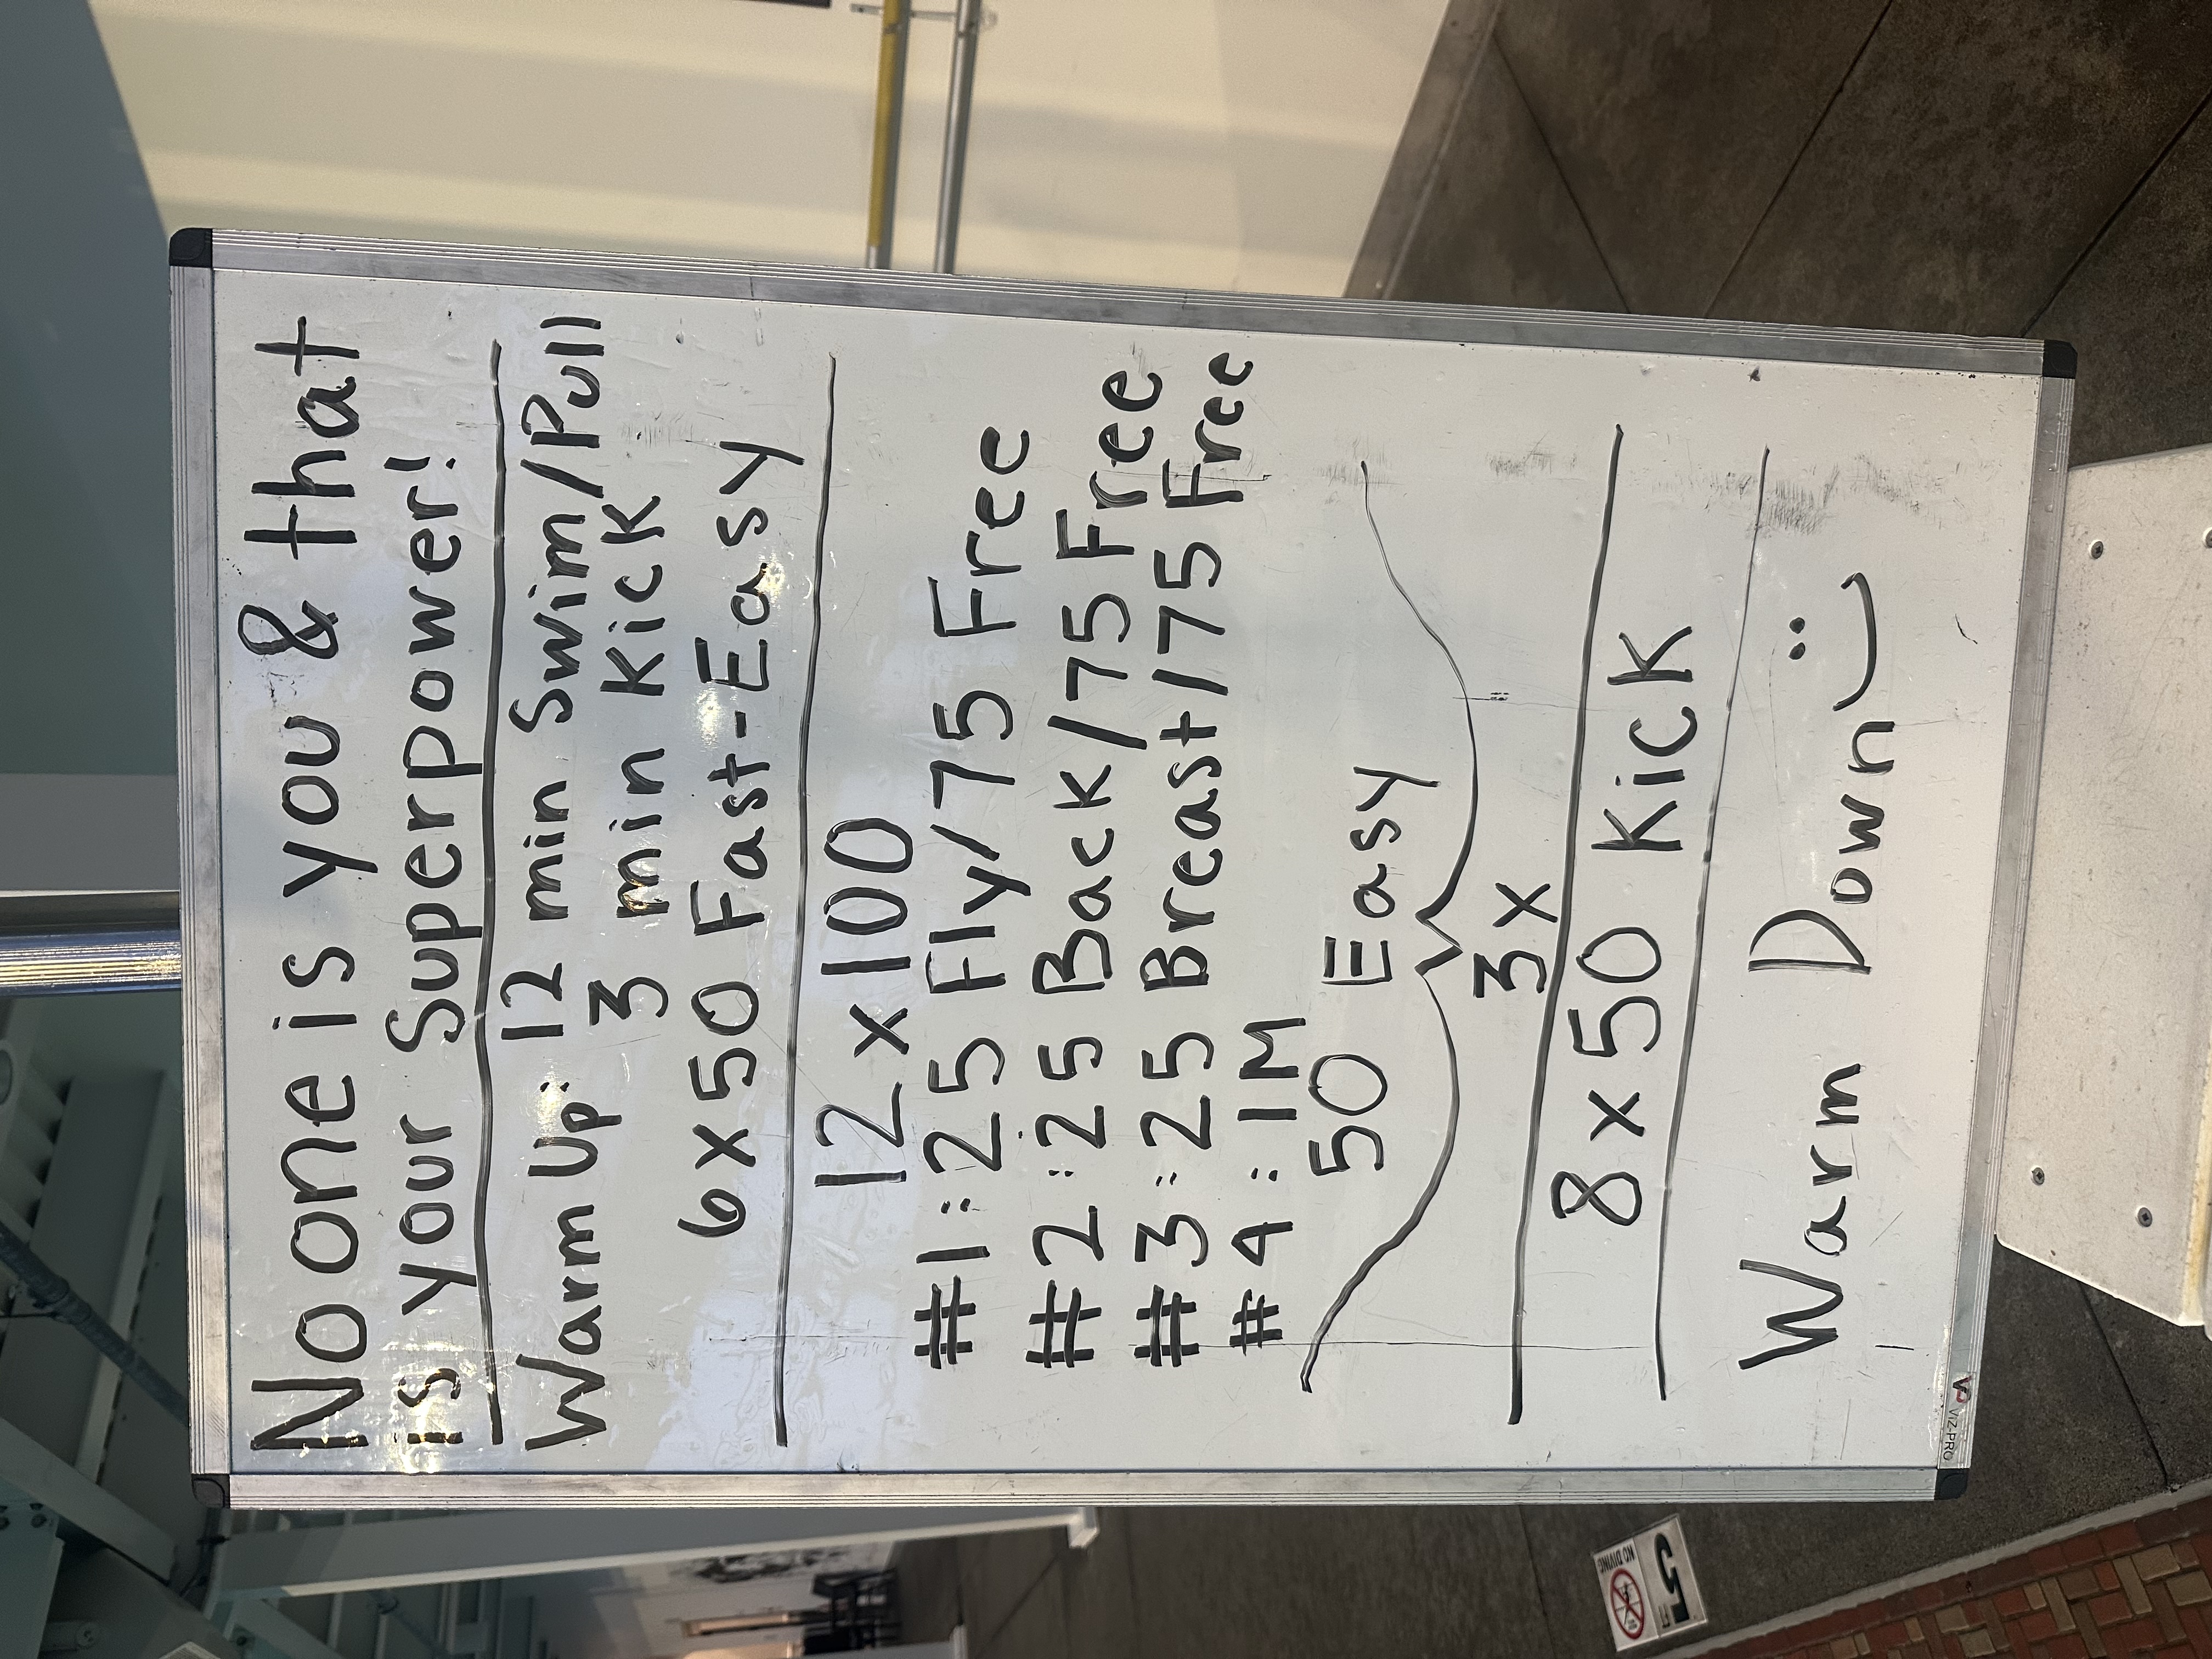 No one is you & that
is your Superpower!
Warm Up: 12 min Swim/Pull
3 min Kick
6x50 Fast-Easy
12x100
#1:25 Fly/75 Free
#2:25 Back/75 Free
#3:25 Breast/75 Free
#4:IM
50 Easy
3x
8x50 Kick
Warm Down
VIZ-PRO
NO DIVING
5 FT